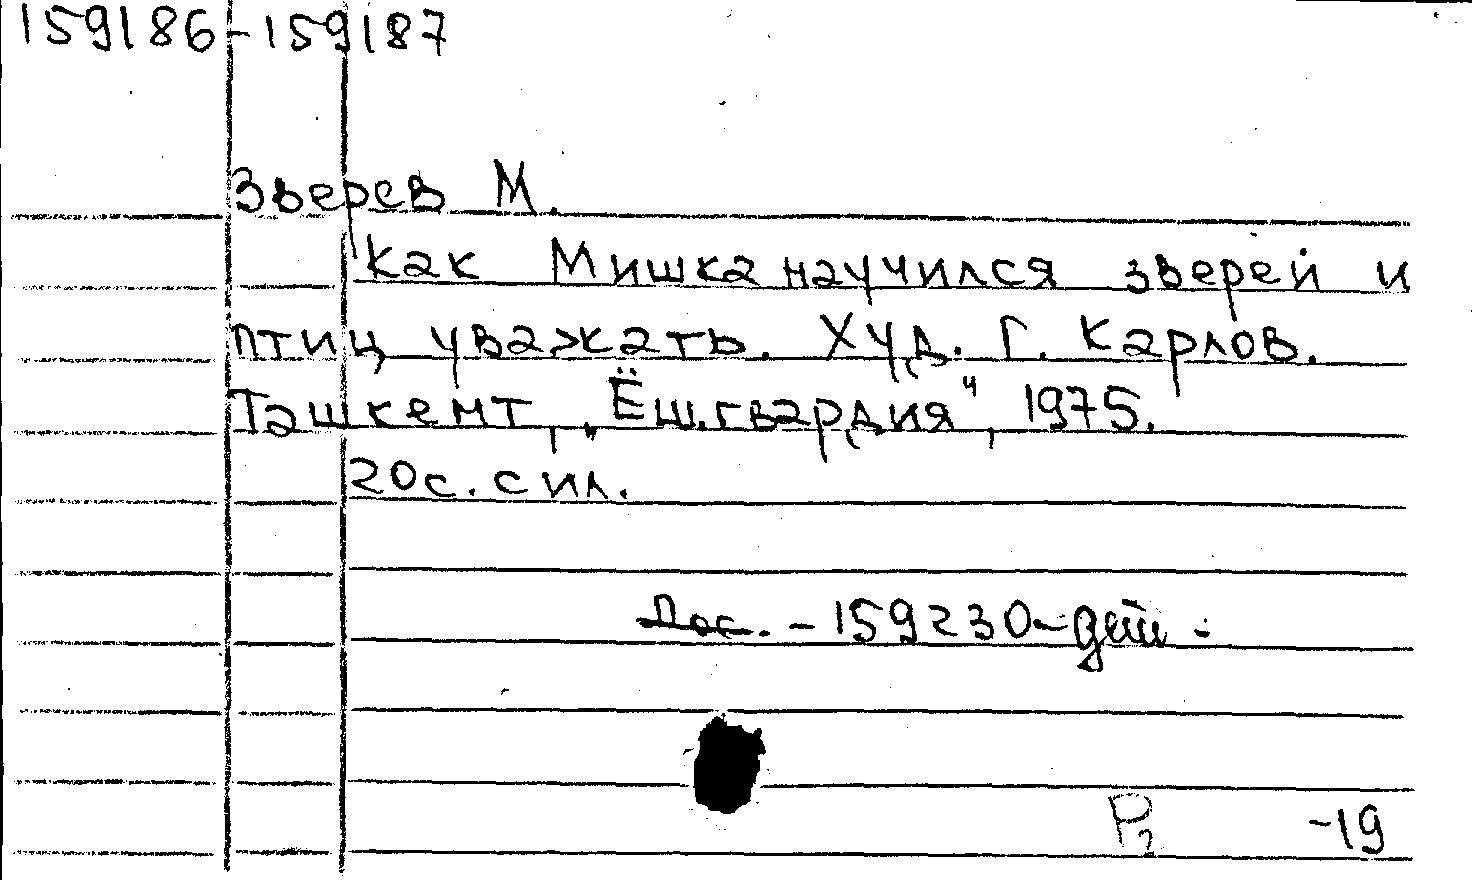 159186-159187
Зверев М.
Как Мишка научился зверей и
птиц уважать. Худ. Г. Карлов.
Ташкент, „Ёш гвардия“, 1975.
20с. с ил.
Дос. - 159230-дет -
Р2 -19